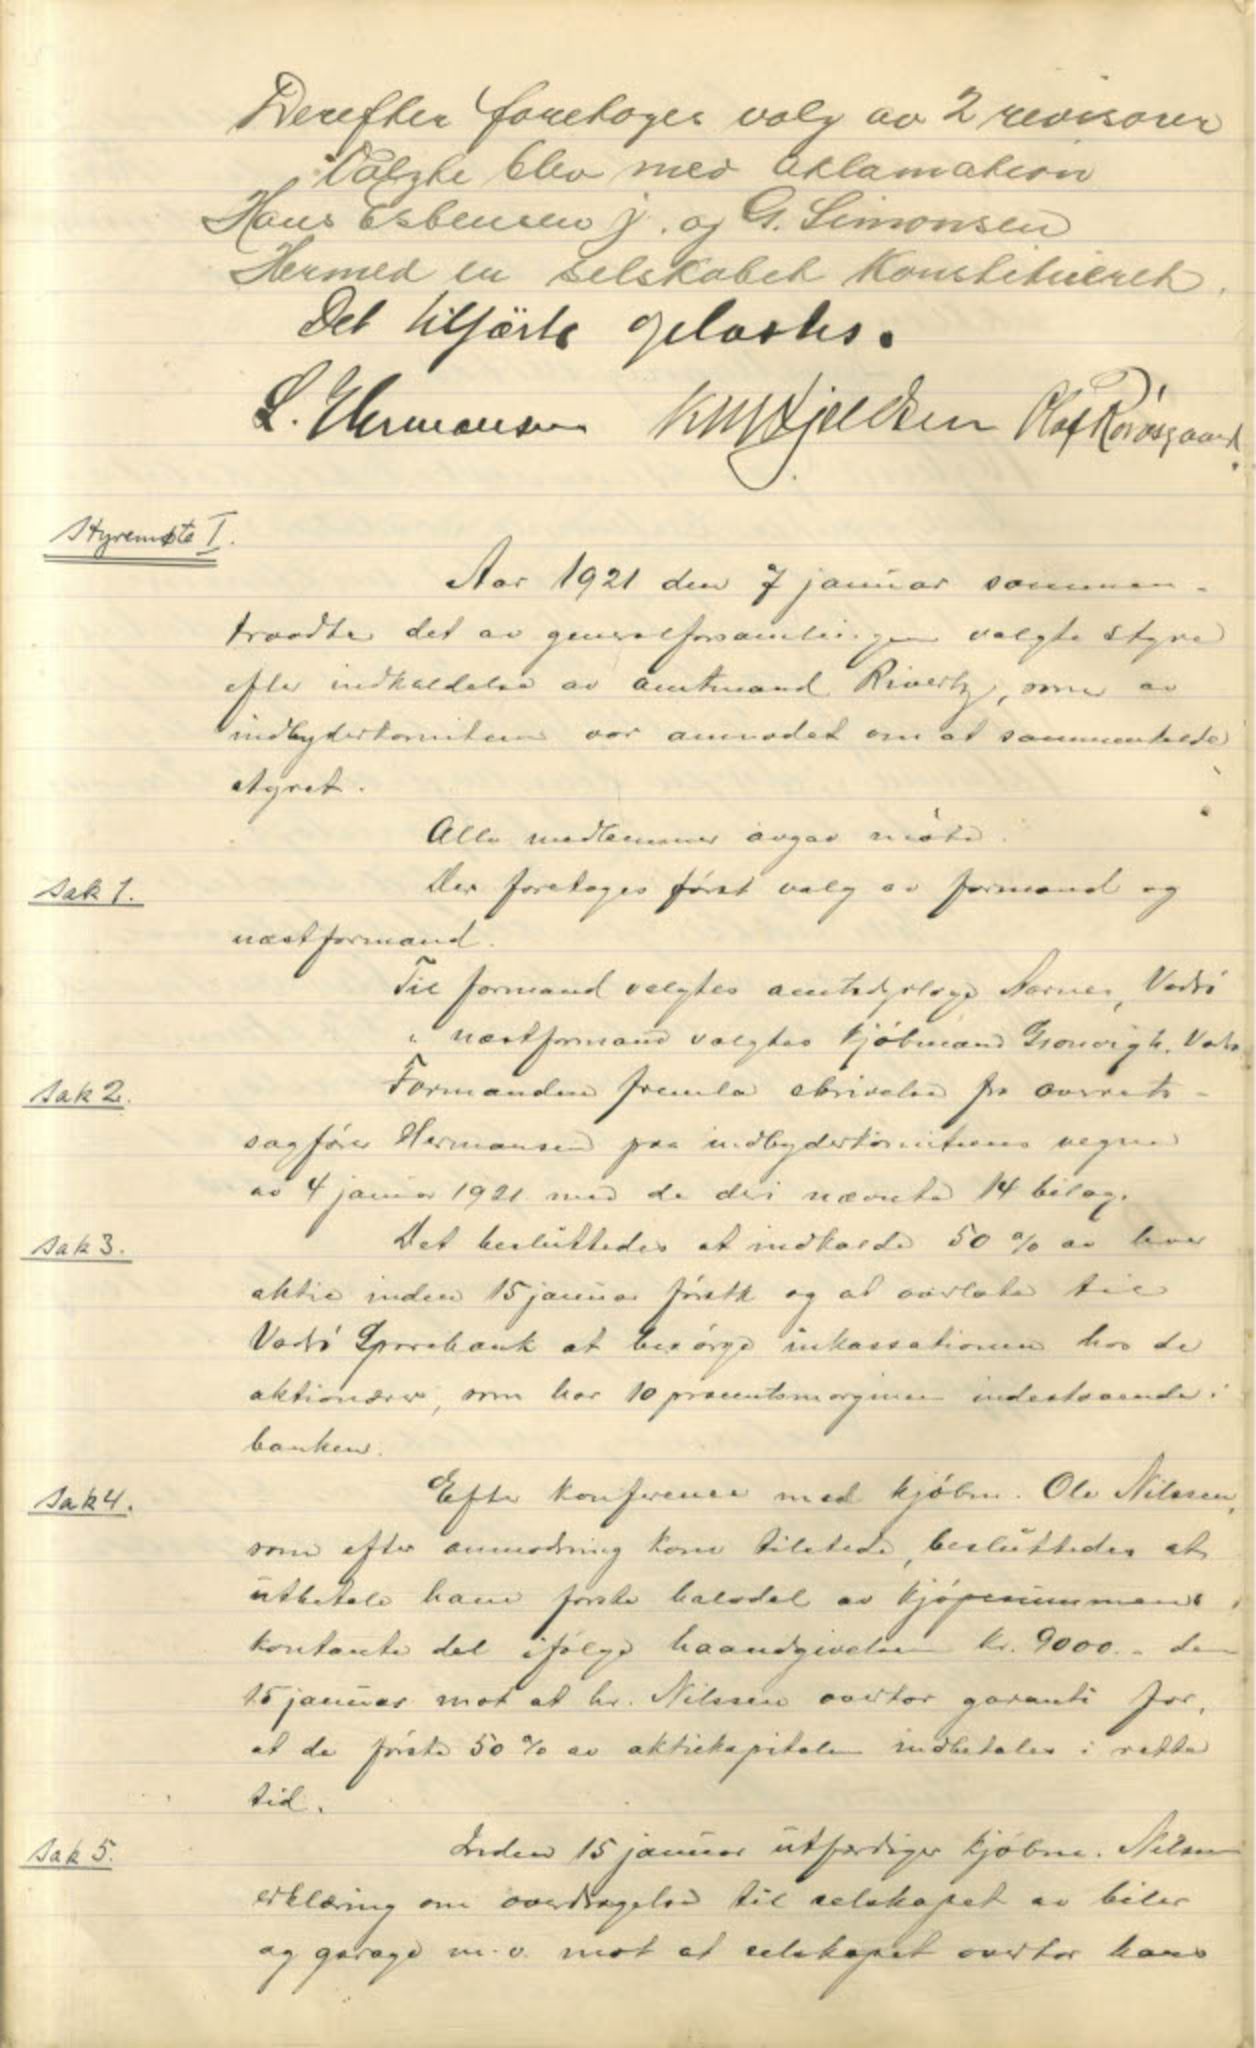 Derefter foretoges valg av 2 revisorer
Valgte blev med aklamation
Hans Esbensen j. og G. Simonsen
Hermed er selskabet konstitueret.
Det tilførte oplæstes.
L. Hermansen Olaf
Styremøte I.
Aar 1921 den 7 januar sammen-
traadte det av generalforsamlingen valgte styre
efter indkaldelse av amtmand Rivertz, som av
indbyderkomiteen var anmodet om at sammenkalde
styret.
Alle medlemmer avgav møte.
Sak 1. Der foretoges først valg av formand og
næstformand.
Til formand valgtes amtsdyrlæge Aarnes, Vadsö
" næstformand valgtes kjöbmand Vadsö
Sak 2. Formanden fremla skrivelse fra overrets-
sagfører Hermansen paa indbyderkomiteens vegne
av 4 januar 1921 med de deri nævnte 14 bilag.
Sak 3. Det besluttedes at indkalde 50 % av hver
aktie inden 15 januar förstk og at overlate til
Vadsö Sparebank at besörge inkassationen hos de
aktionærer, som har 10 procentsmarginen indestaaende i
banken.
Sak 4. Efter konference med kjöbm. Ole Nilssen,
som efter anmodning kom tilstede, besluttedes at
utbetale ham förste halvdel av kjöpesummens
kontante del ifølge haandgivelsen kr. 9000.- den
15 januar mot at hr. Nilssen overtar garanti for,
at de förste 50 % av aktiekapitalen indbetales i rette
tid.
Sak 5. Inden 15 januar utfærdiger kjöbm. Nilssen
erklæring om overdragelse til selskapet av biler
og garage m.v. mot at selskapet overtar hans